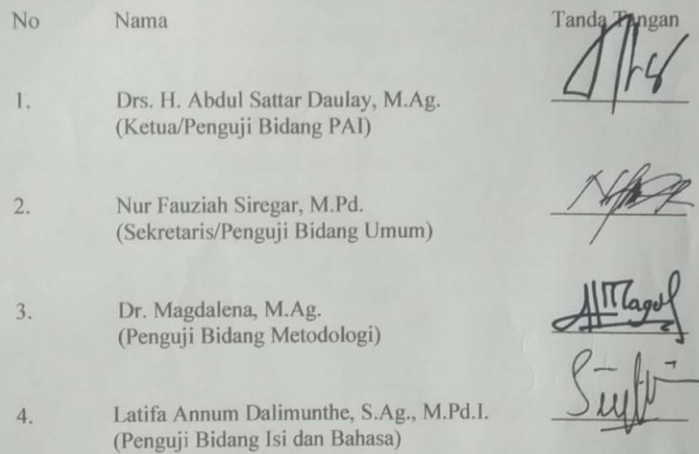 No Nama Tanda Tangan
1. Drs. H. Abdul Sattar Daulay, M.Ag.
(Ketua/Penguji Bidang PAI)
2. Nur Fauziah Siregar, M.Pd.
(Sekretaris/Penguji Bidang Umum)
3. Dr. Magdalena, M.Ag.
(Penguji Bidang Metodologi)
4. Latifa Annum Dalimunthe, S.Ag., M.Pd.I.
(Penguji Bidang Isi dan Bahasa)